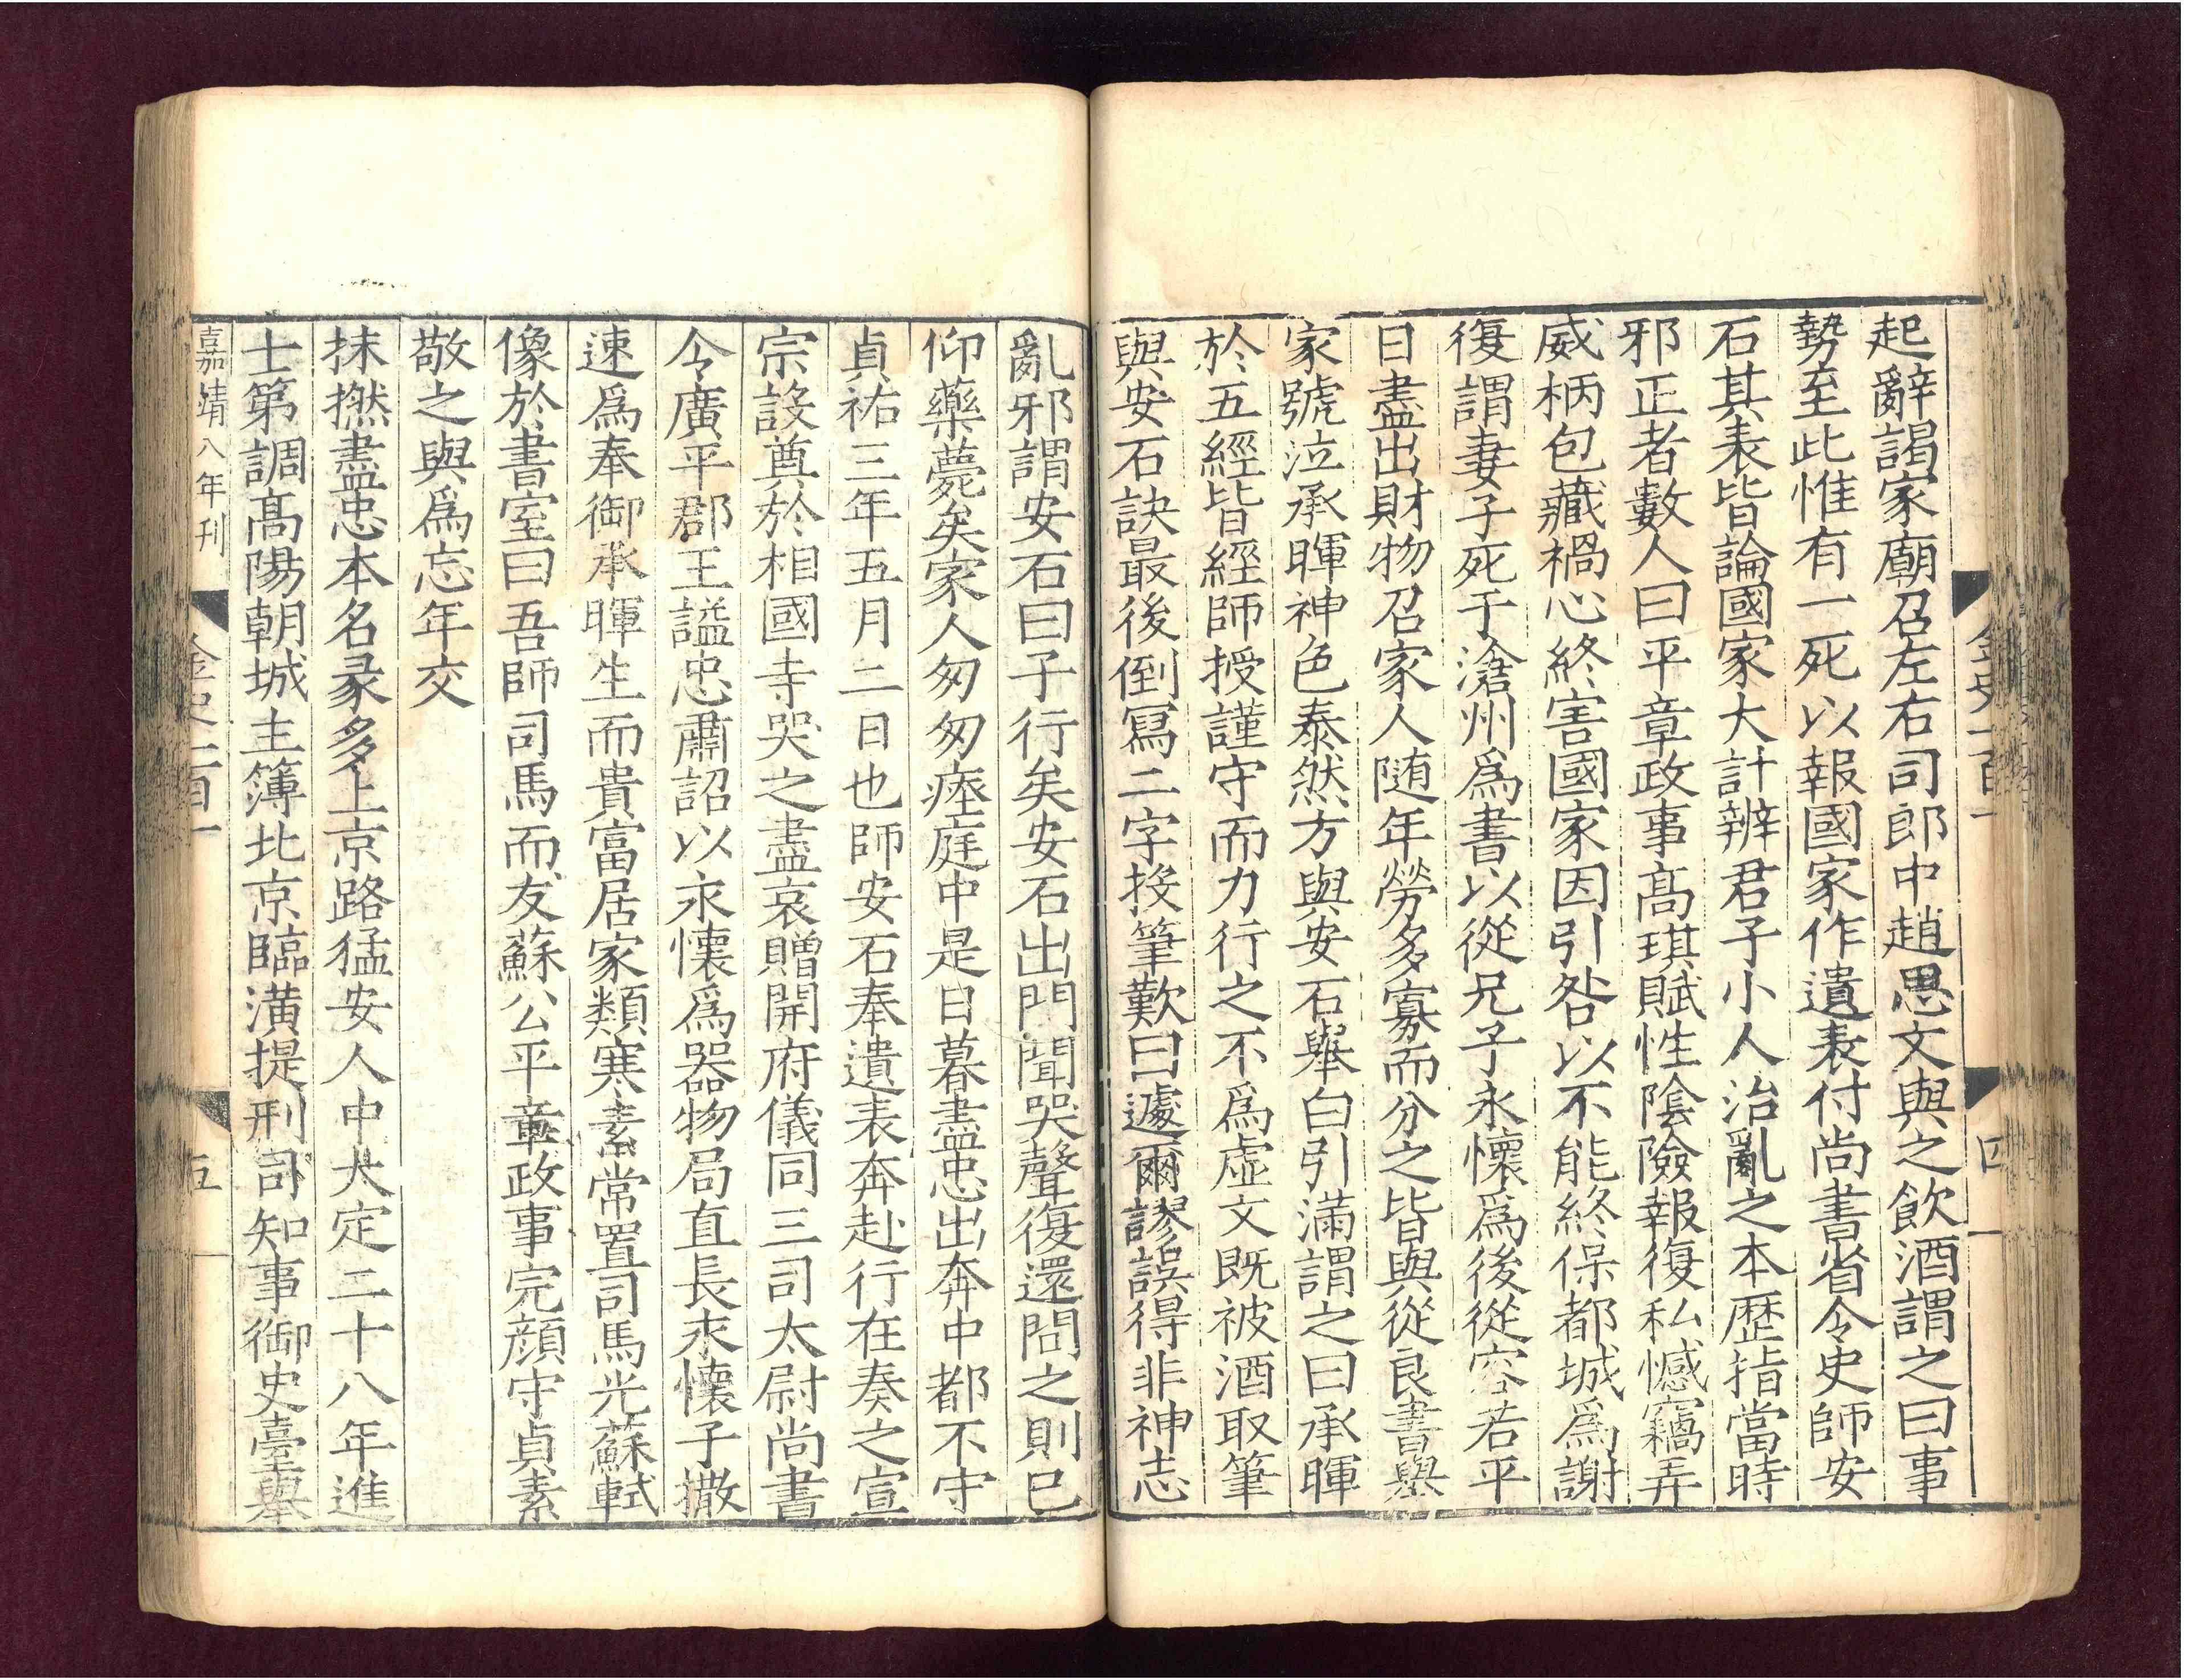 金史一百一
四
起辭謁家廟召左右司郎中趙思文與之飲酒謂之曰事
勢至此惟有一死以報國家作遺表付尚書省令史師安
石其表皆論國家大計辨君子小人治亂之本歷指當時
邪正者數人曰平章政事高琪賦性陰險報復私憾竊弄
威柄包藏禍心終害國家因引咎以不能終保都城爲謝
復謂妻子死于滄州爲書以從兄子永懷爲後從容若平
日盡出財物召家人随年勞多寡而分之皆與從良書舉
家號泣承暉神色泰然方與安石舉白引滿謂之曰承暉
於五經皆經師授謹守而力行之不爲虛文既被酒取筆
與安石訣最後倒寫二字投筆歎曰遽爾謬誤得非神志
亂邪謂安石曰子行矣安石出門聞哭聲復還問之則已
仰藥薨矣家人匆匆瘞庭中是日暮盡忠出奔中都不守
貞祐三年五月二日也師安石奉遺表奔赴行在奏之宣
宗設奠於相國寺哭之盡哀贈開府儀同三司太尉尚書
令廣平郡王謚忠肅詔以永懷爲器物局直長永懷子撒
速爲奉御承暉生而貴富居家類寒素常置司馬光蘇軾
像於書室曰吾師司馬而友蘇公平章政事完顔守貞素
敬之與爲忘年交
抹撚盡忠本名彖多上京路猛安人中大定二十八年進
士第調高陽朝城主簿北京臨潢提刑司知事御史臺舉
嘉靖八年刊
金史一百一
五